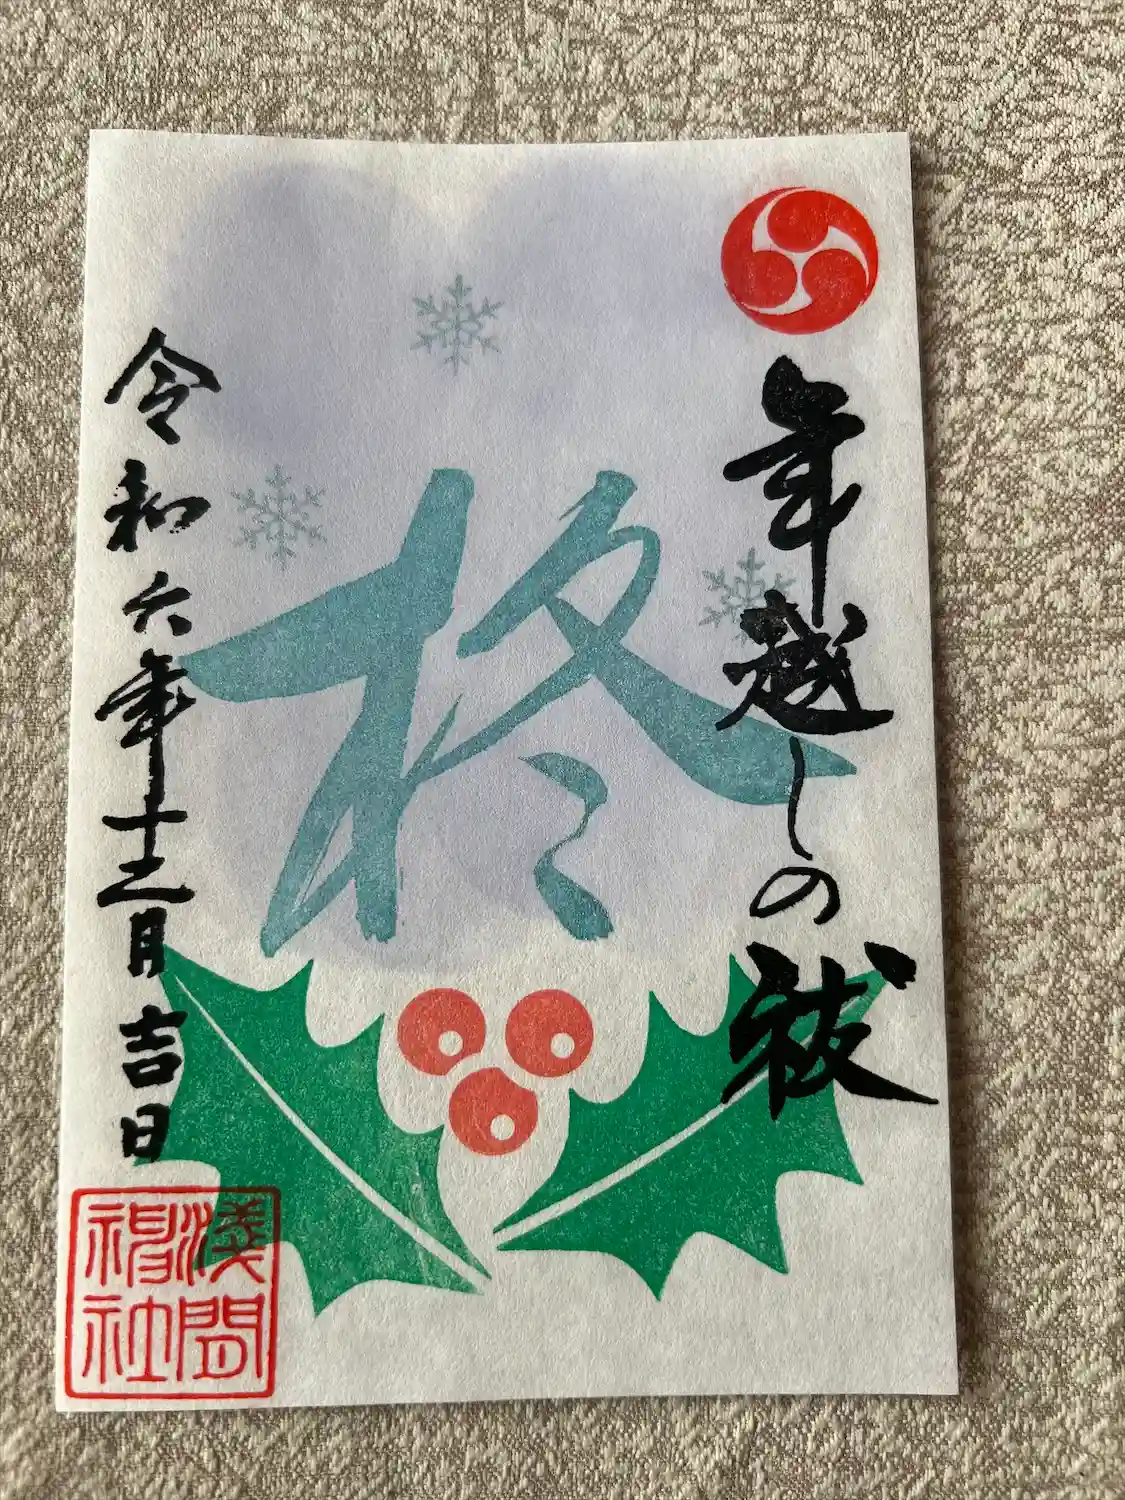 年越しの祓
柊
令和六年十二月吉日
浅間
神社